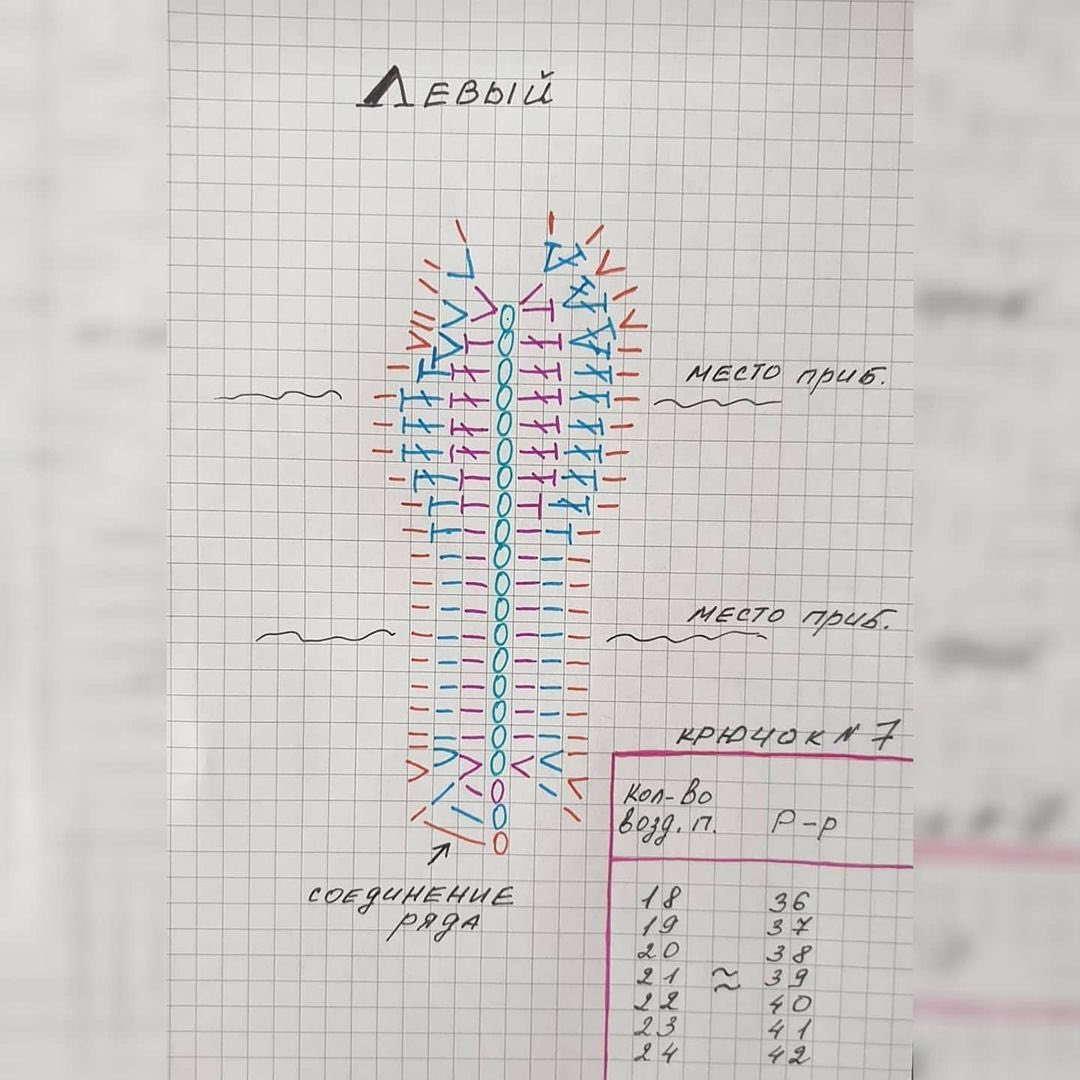 ЛЕВЫЙ
МЕСТО ПРИБ.
МЕСТО ПРИБ.
КРЮЧОК N 7
КОЛ-ВО
ВОЗД. П. Р-Р
18 36
19 37
20 38
21 ≈ 39
22 40
23 41
24 42
СОЕДИНЕНИЕ
РЯДА